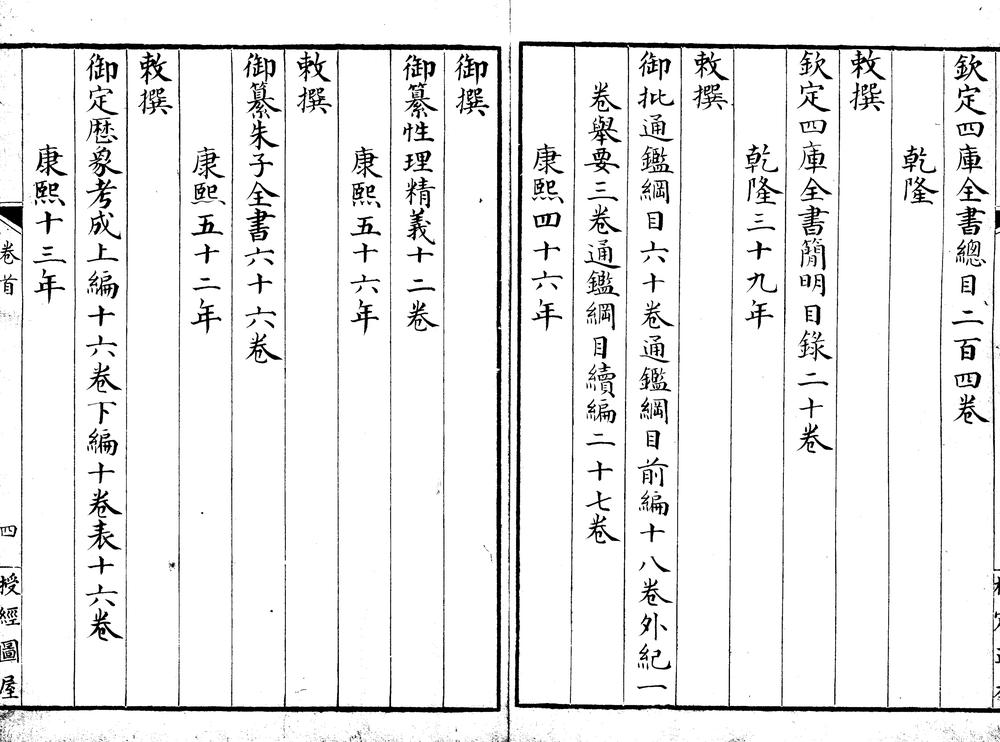 欽定四庫全書總目二百四卷
乾隆
敕撰
欽定四庫全書簡明目錄二十卷
乾隆三十九年
敕撰
御批通鑑綱目六十卷通鑑綱目前編十八卷外紀一
卷舉要三卷通鑑綱目續編二十七卷
康熙四十六年
御撰
御纂性理精義十二卷
康熙五十六年
敕撰
御纂朱子全書六十六卷
康熙五十二年
敕撰
御定歷象考成上編十六卷下編十卷表十六卷
康熙十三年
卷首
四
授經圖屋